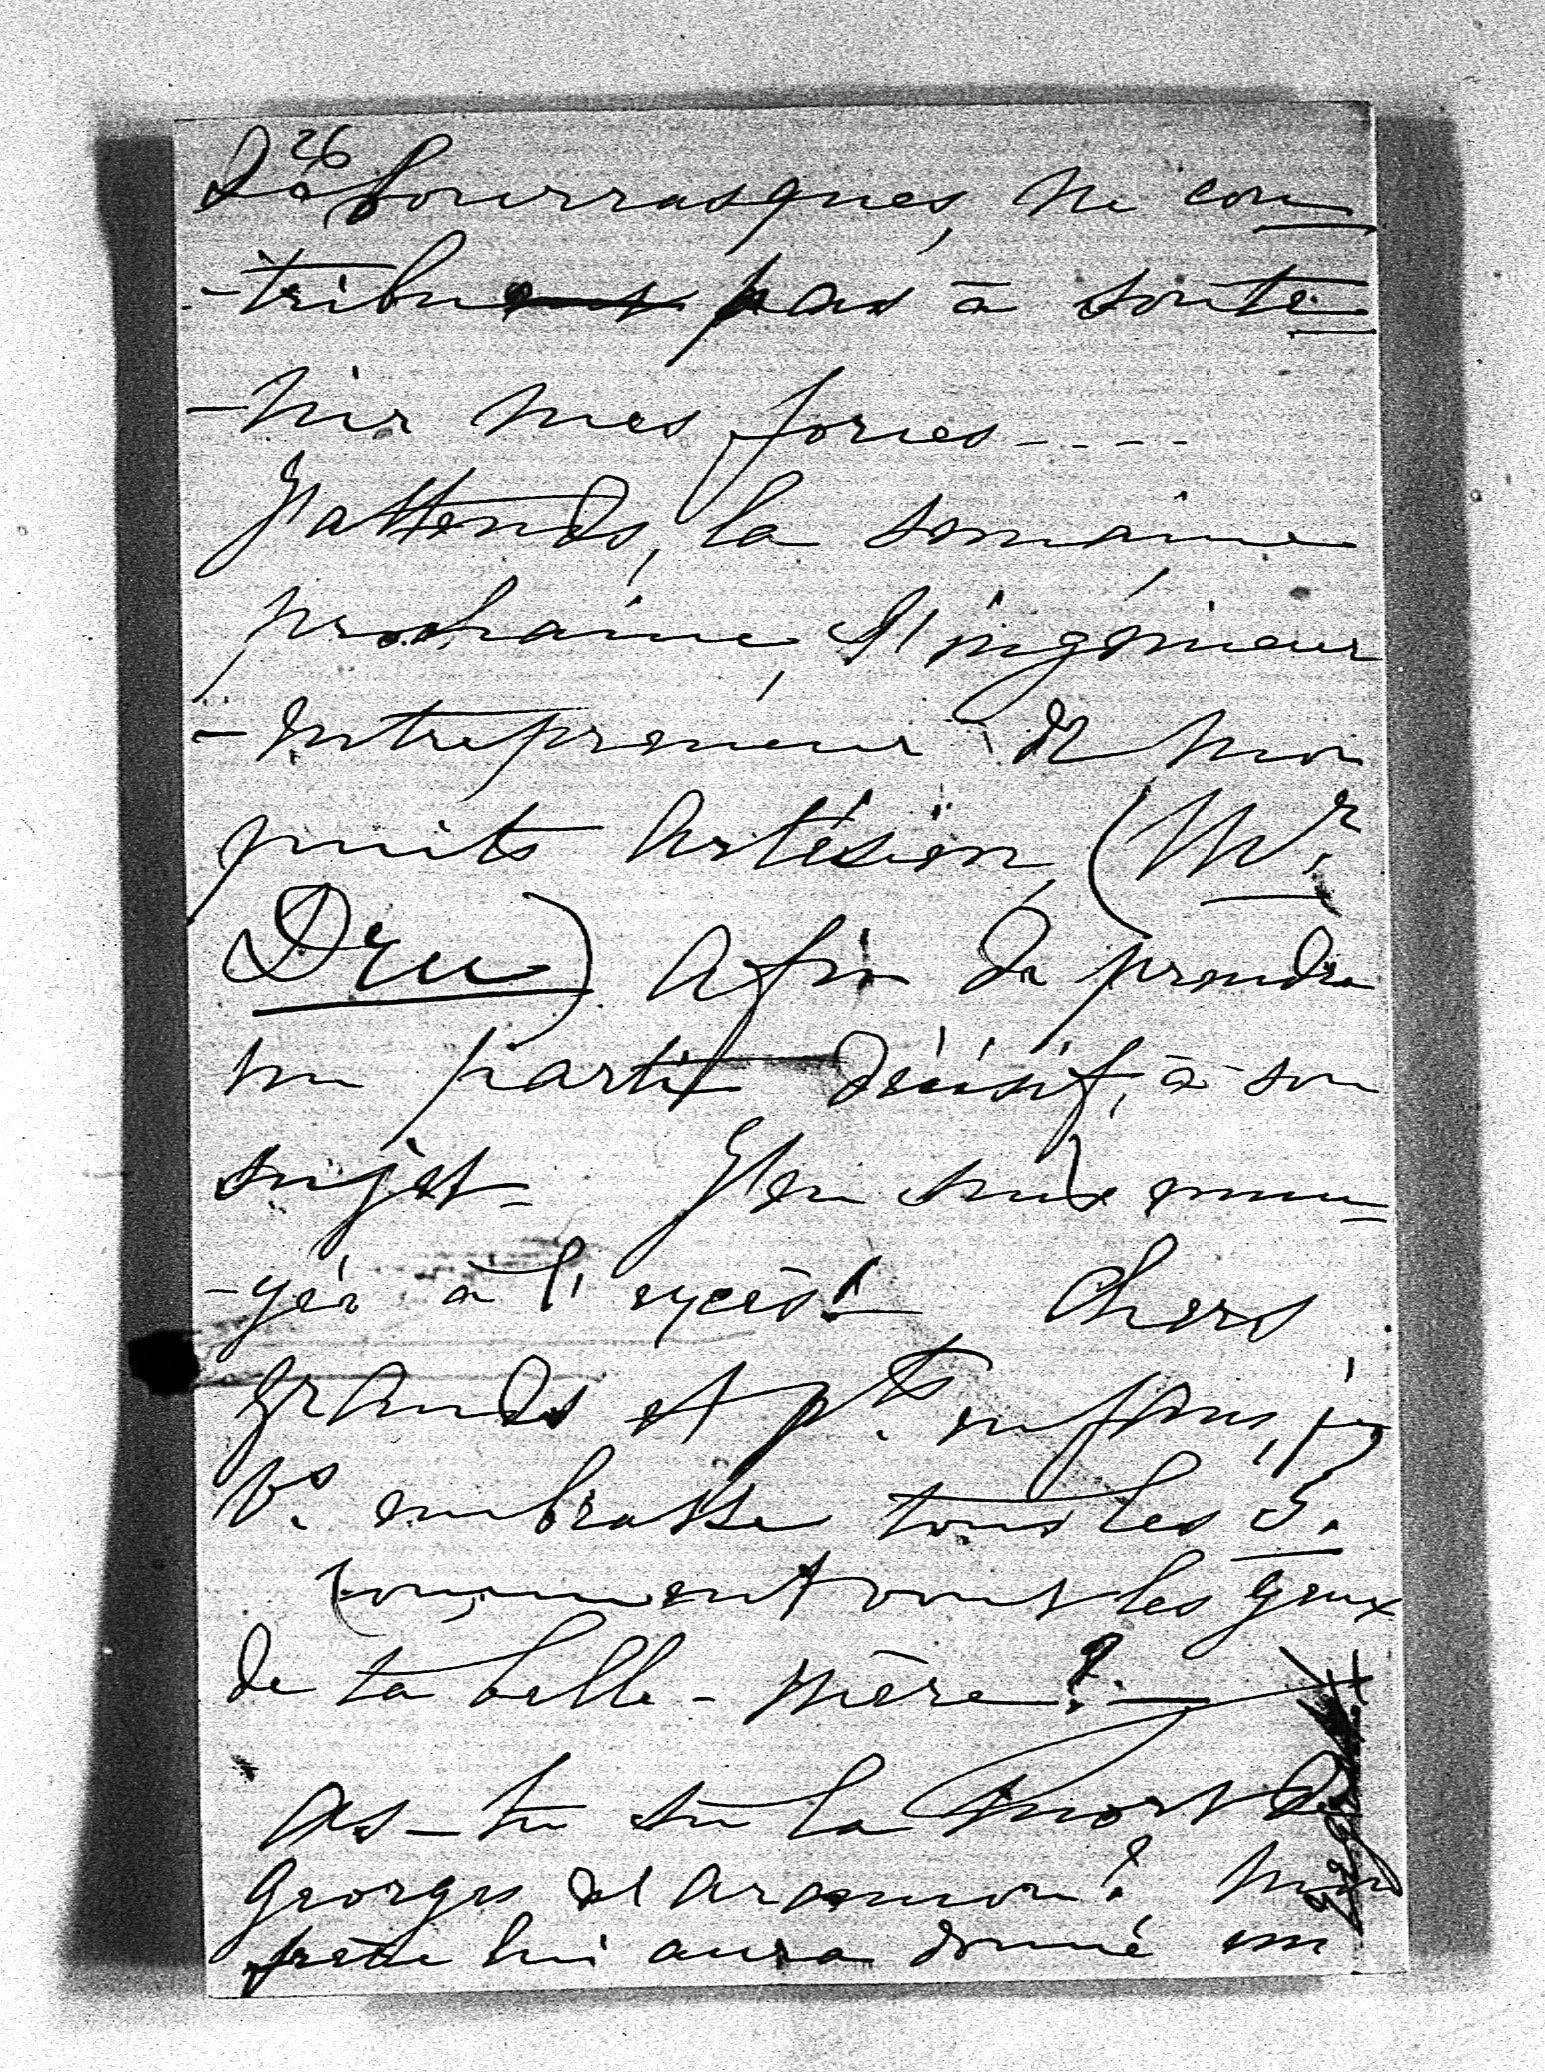 26
De bourrasques, ne con
-tribue pas à soute
-nir mes forces - - - -
J'attends, la semaine
prochaine, l'ingénieur
-entrepreneur de mon
puits artésien, (Mr.
Dru) afin de prendre
un parti décisif, à son
sujet - J'en suis ennu
-yée à l'excès! - Chers
grands et pts. enfans, je
vs. embrasse tous les 5.
Comment vont les yeux
de ta belle-mère? -
As-tu su la mort de
Georges d'Aramon? Mon
frère lui aura donné un